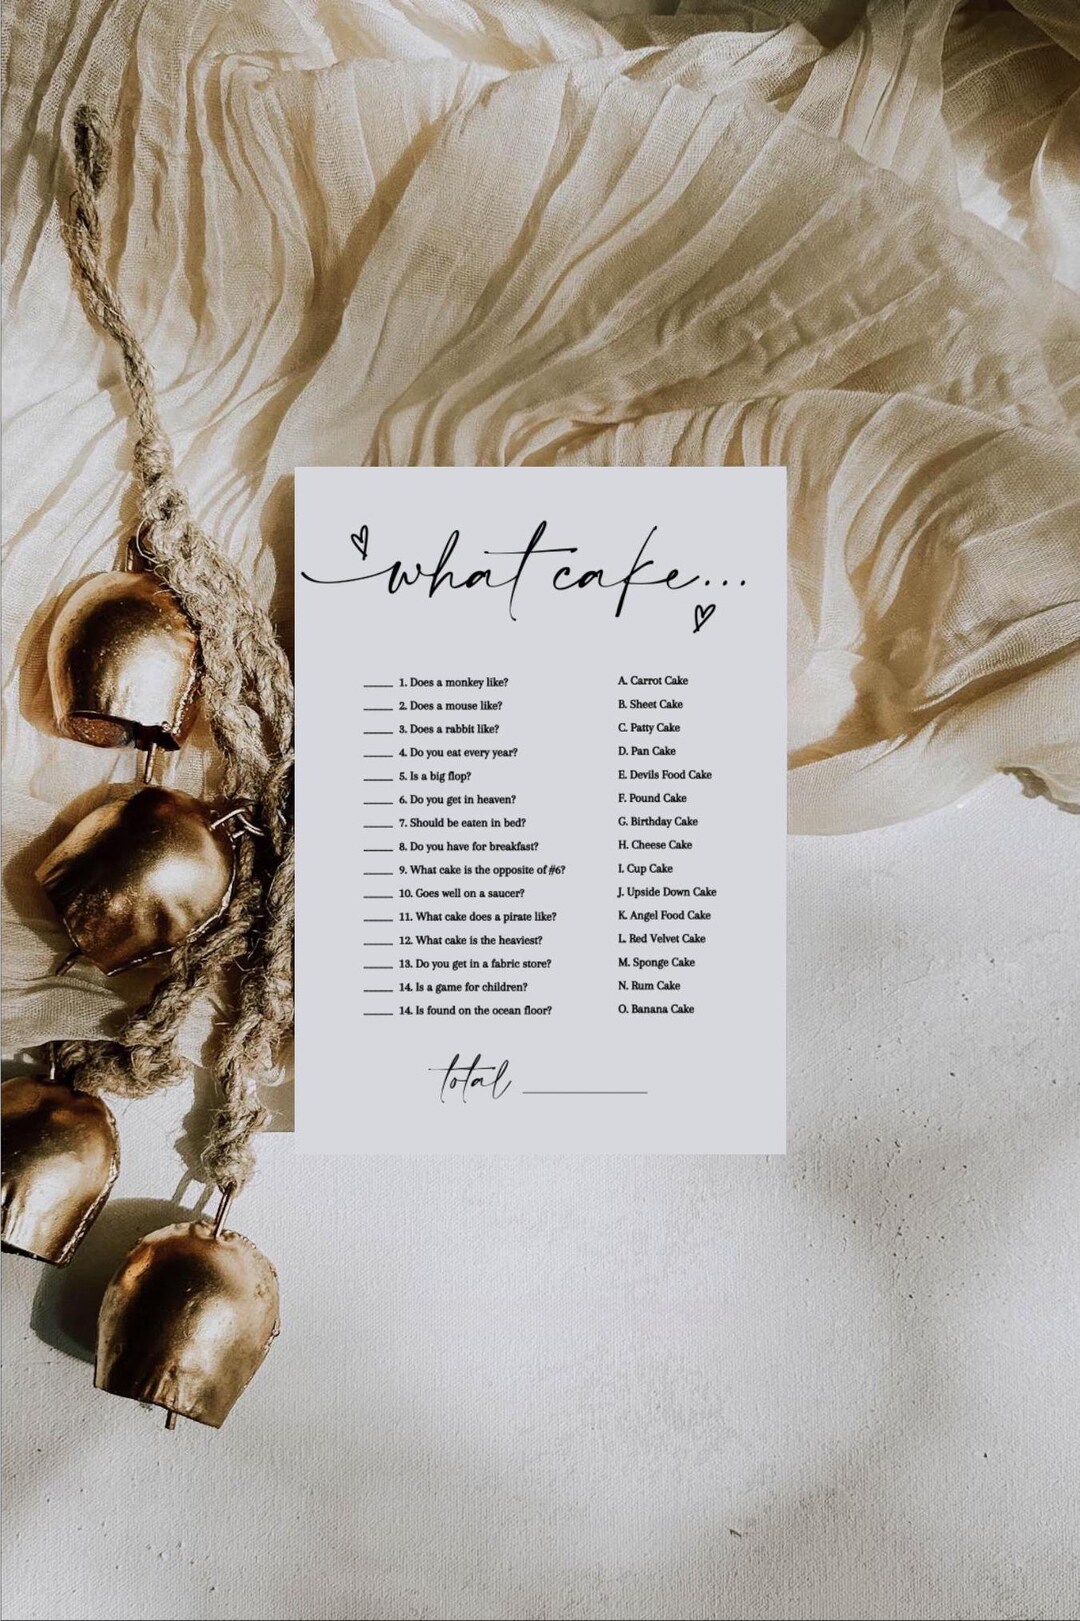 what cake...
_____ 1. Does a monkey like? A. Carrot Cake
_____ 2. Does a mouse like? B. Sheet Cake
_____ 3. Does a rabbit like? C. Patty Cake
_____ 4. Do you eat every year? D. Pan Cake
_____ 5. Is a big flop? E. Devils Food Cake
_____ 6. Do you get in heaven? F. Pound Cake
_____ 7. Should be eaten in bed? G. Birthday Cake
_____ 8. Do you have for breakfast? H. Cheese Cake
_____ 9. What cake is the opposite of #6? I. Cup Cake
_____ 10. Goes well on a saucer? J. Upside Down Cake
_____ 11. What cake does a pirate like? K. Angel Food Cake
_____ 12. What cake is the heaviest? L. Red Velvet Cake
_____ 13. Do you get in a fabric store? M. Sponge Cake
_____ 14. Is a game for children? N. Rum Cake
_____ 14. Is found on the ocean floor? O. Banana Cake
total ____________